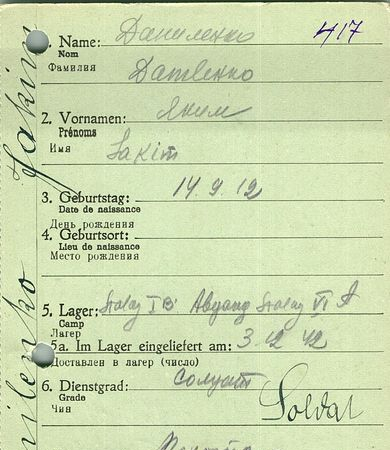 417
1. Name: Даниленко
Nom
Фамилия
Danilenko
2. Vornamen: Яким
Prénoms
Имя
Jakim
3. Geburtstag: 14.9.12
Date de naissance
День рождения
4. Geburtsort:
Lieu de naissance
Место рождения
5. Lager: Stalag I B Abgang Stalag VI A
Camp
Лагерь
5a. Im Lager eingeliefert am: 3.12.42
Доставлен в лагерь (число)
6. Dienstgrad: Солдат
Grade
Чин
Soldat
Jakim